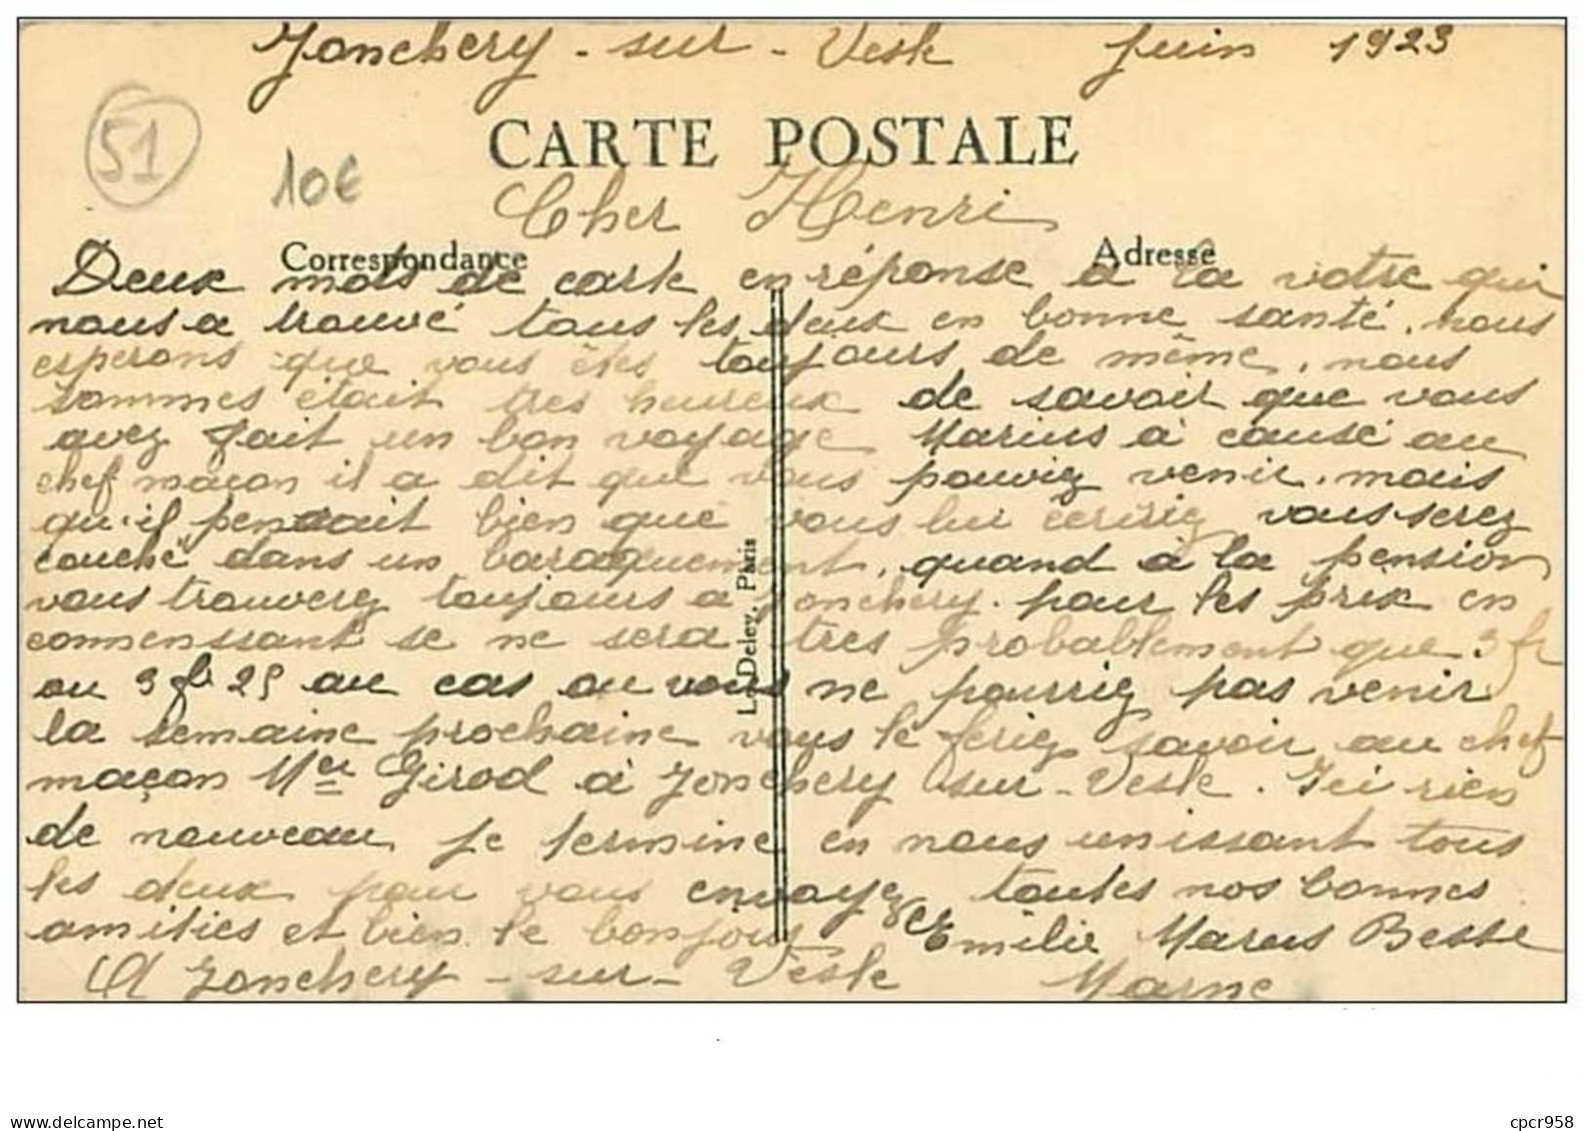 Jonchery - sur - Vesle Juin 1923
51
10€
CARTE POSTALE
Cher Henri
Correspondance
Adresse
Deux mots de carte en réponse a la votre qui
nous a trouvé tous les deux en bonne santé, nous
esperons que vous êtes toujours de même, nous
sommes était tres heureux de savoir que vous
avez fait un bon voyage Marius à causé au
chef maçon il a dit que vous pouviez venir, mais
qu'il pensait bien que vous lui ecririez vous serez
couché dans un baraquement, quand à la pension
vous trouverez toujours a Jonchery. pour les prix en
commenssant se ne sera tres probablement que 3 fr
ou 3 fr 25 au cas ou vous ne pourriez pas venir
la semaine prochaine vous le feriez savoir au chef
maçon Mer Girod à Jonchery sur - Vesle. Ici rien
de nouveau je termine en nous unissant tous
les deux pour vous envoyez toutes nos bonnes
amities et bien le bonjour Emilie Marius Besse
A Jonchery - sur - Vesle Marne
L. Deley, Paris
cpcr958